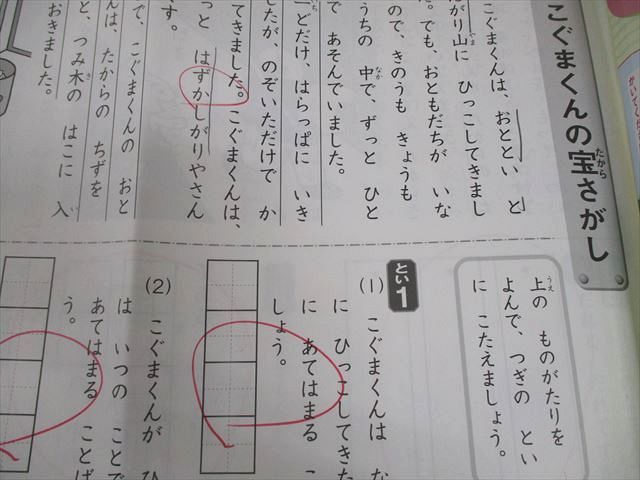 こぐまくんの宝さがし
たから
こぐまくんは、おととい と
がり山に ひっこしてきまし
た。でも、おともだちが いな
ので、きのうも きょうも
うちの 中で、ずっと ひと
で あそんでいました。
どだけ、はらっぱに いき
したが、のぞいただけで か
てきました。こぐまくんは、
っと はずかしがりやさん
す。
で、こぐまくんの おと
んは、たからの ちずを
と、つみ木の はこに 入
おきました。
上の ものがたりを
よんで、つぎの とい
に こたえましょう。
とい1
(1) こぐまくんは な
に ひっこしてきた
に あてはまる こ
しょう。
(2) こぐまくんが ひ
は いつの ことで
あてはまる ことば
う。